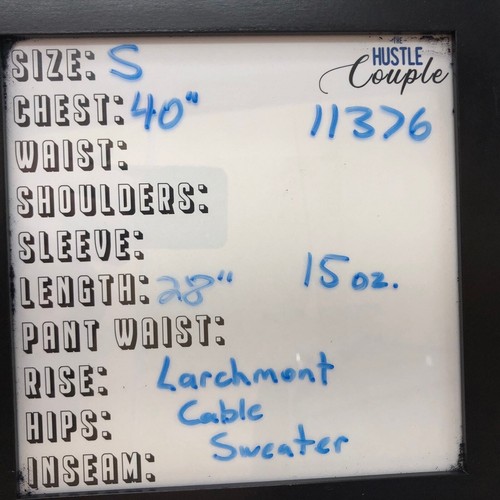 THE
HUSTLE
Couple
SIZE: S
CHEST: 40"
11376
WAIST:
SHOULDERS:
SLEEVE:
LENGTH: 28"
15 oz.
PANT WAIST:
RISE: Larchmont
Cable
HIPS:
Sweater
INSEAM: